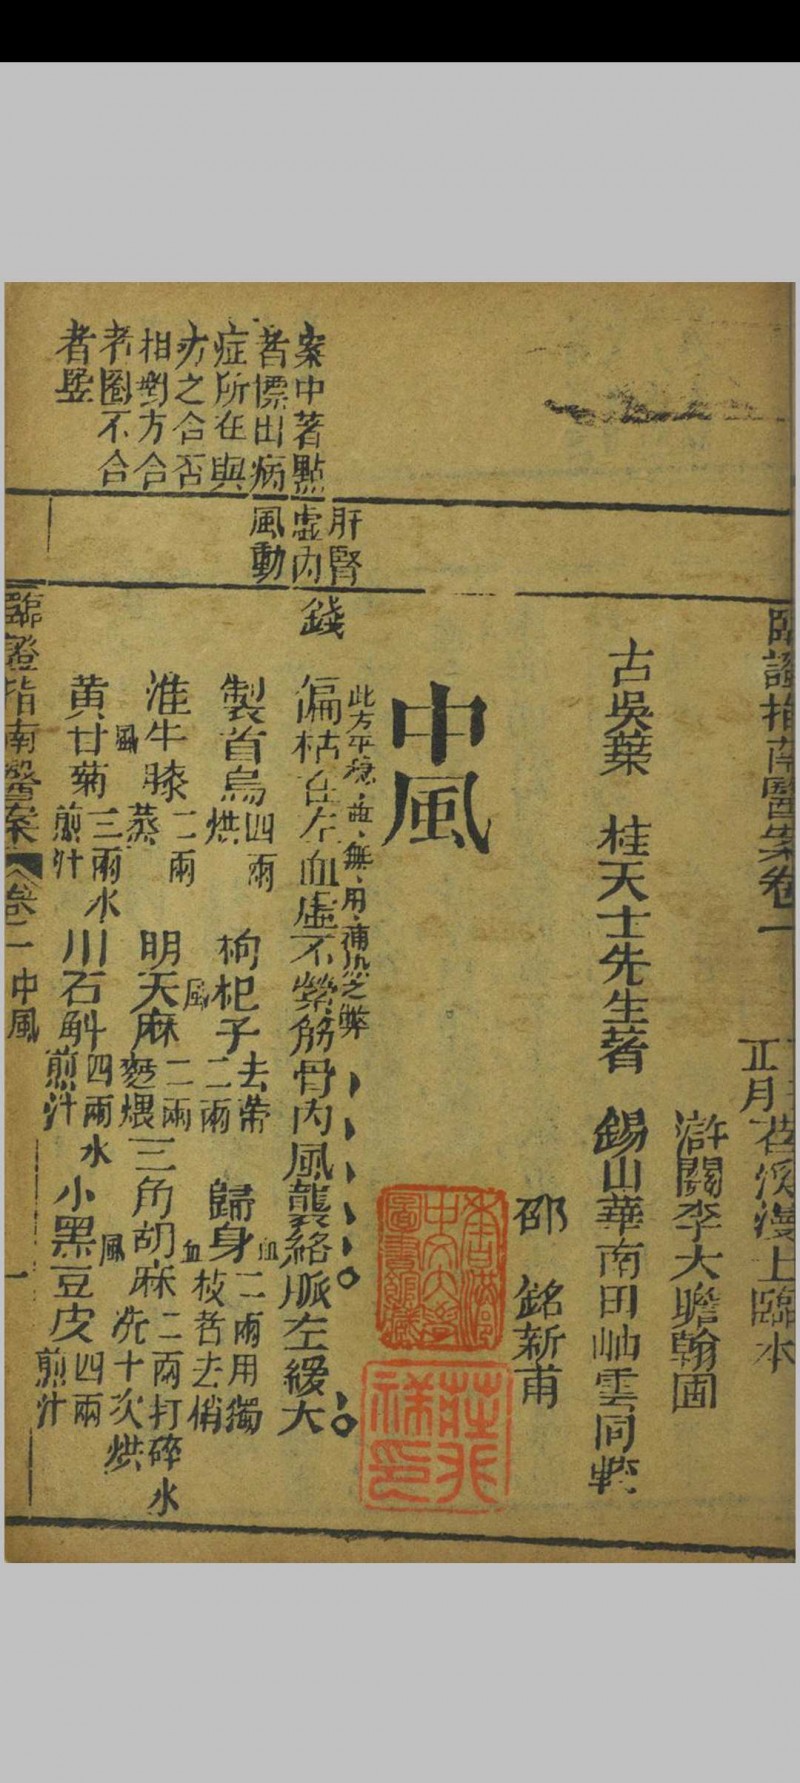 臨證指南醫案卷一
正月苕溪漫士臨本
滸關李大瞻翰圃
古吳葉 桂天士先生著 錫山華南田岫雲同較
邵 銘新甫
中風
此方平穩並無用補火之弊
錢 偏枯在左血虛不縈筋骨內風襲絡脈左緩大
製首烏四兩烘 枸杞子去蒂二兩 歸身二兩用獨枝者去梢
淮牛膝二兩蒸 明天麻二兩麪煨 三角胡麻二兩打碎水洗十次烘
黃甘菊三兩水煎汁 川石斛四兩水煎汁 小黑豆皮四兩煎汁
肝腎虛內風動
案中著點
者標出病
症所在與
方之合否
相對方合
者圈不合
者竪
臨證指南醫案 卷一 中風 一
香港中文大學圖書館藏